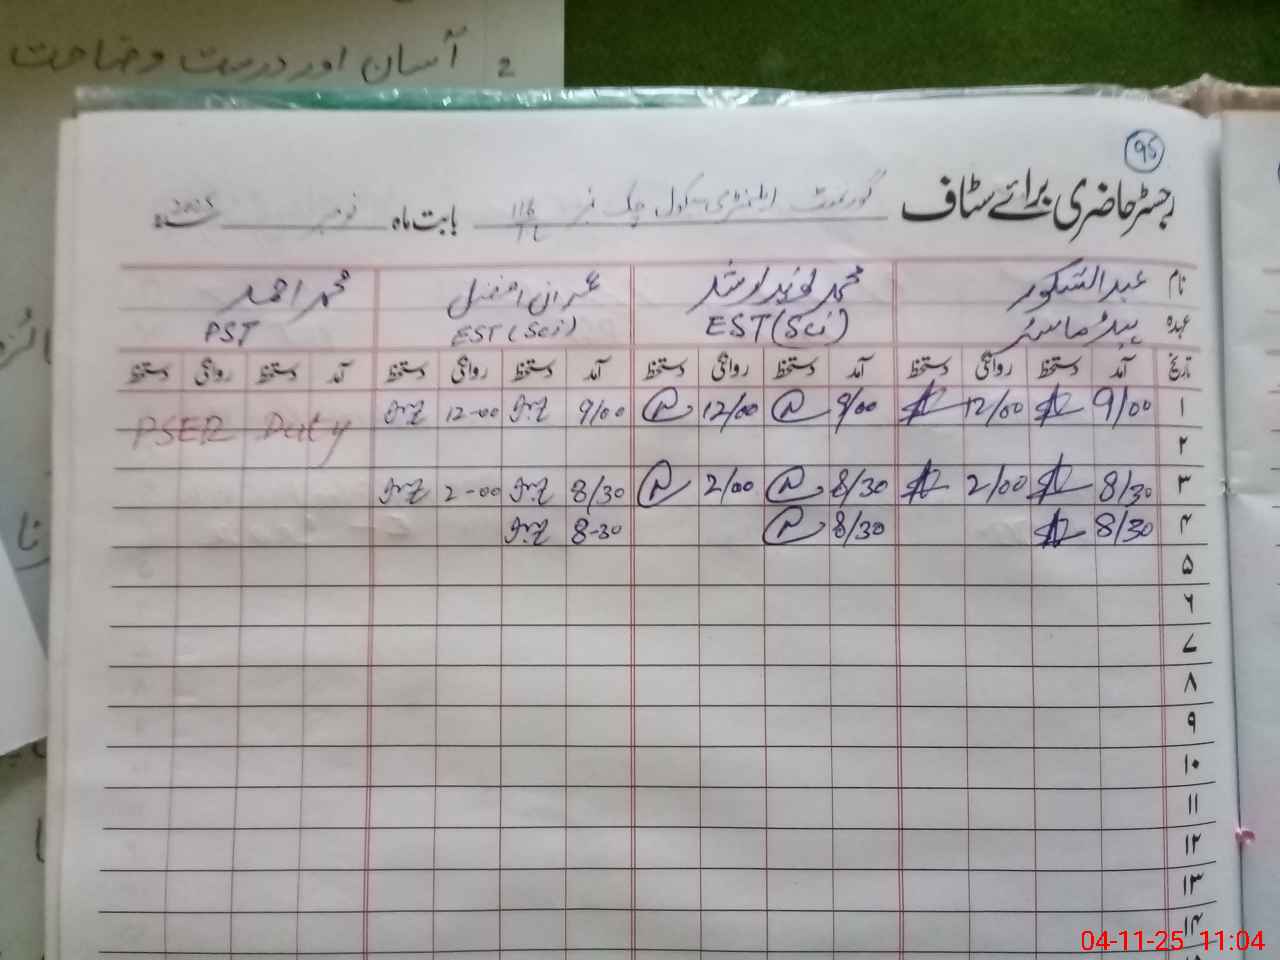 2 آسان اور درست وضاحت
95
رجسٹر حاضری برائے سٹاف گورنمنٹ ایلیمنٹری سکول چک نمبر 116 بابت ماہ نومبر 2025
نام عبدالشکور محمد نوید ارشد عمران افضل محمد احمد
عہدہ ہیڈ ماسٹر EST (Sci) EST (Sci) PST
تاریخ آمد دستخط روانگی دستخط آمد دستخط روانگی دستخط آمد دستخط روانگی دستخط آمد دستخط روانگی دستخط
۱ 9/00 12/00 9/00 12/00 9/00 12-00 PSER Duty
۲
۳ 8/30 2/00 8/30 2/00 8/30 2-00
۴ 8/30 8/30 8-30
۵
۶
۷
۸
۹
۱۰
۱۱
۱۲
۱۳
۱۴
04-11-25 11:04